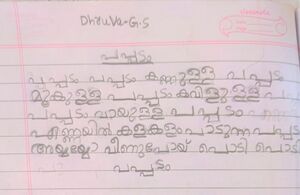 Dhruva-G.S
പപ്പടം
പപ്പടം പപ്പടം കണ്ണുള്ള പപ്പടം
മൂകുള്ള പപ്പടം കവിളുള്ള പ
പപ്പടം വായുള്ള പപ്പടം
എണ്ണയിൽ കളകളം പാടുന്ന പപ്പ
അയ്യയ്യോ വീണുപോയ് പൊടി പൊടി
പപ്പടം